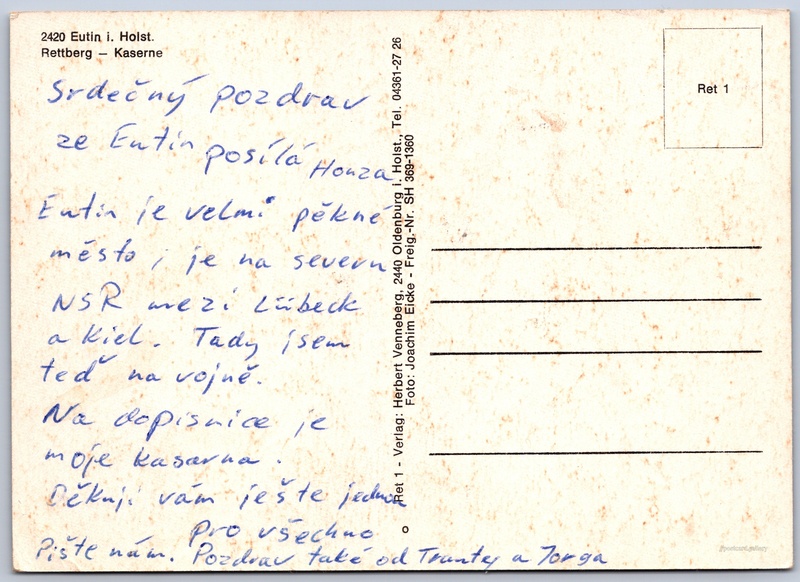 2420 Eutin i. Holst.
Rettberg — Kaserne
Srdečný pozdrav
ze Eutin posílá Honza
Eutin je velmi pěkné
město, je na severu
NSR mezi Lübeck
a Kiel. Tady jsem
teď na vojně.
Na dopisnice je
moje kasarna.
Děkuji vám ješte jednou
pro všechno.
Pište nám. Pozdrav také od Trautej a Jorga
Ret 1 - Verlag: Herbert Venneberg, 2440 Oldenburg i. Holst., Tel. 04361-27 26
Foto: Joachim Eicke - Freig.-Nr. SH 369-1360
Ret 1
postcard.gallery